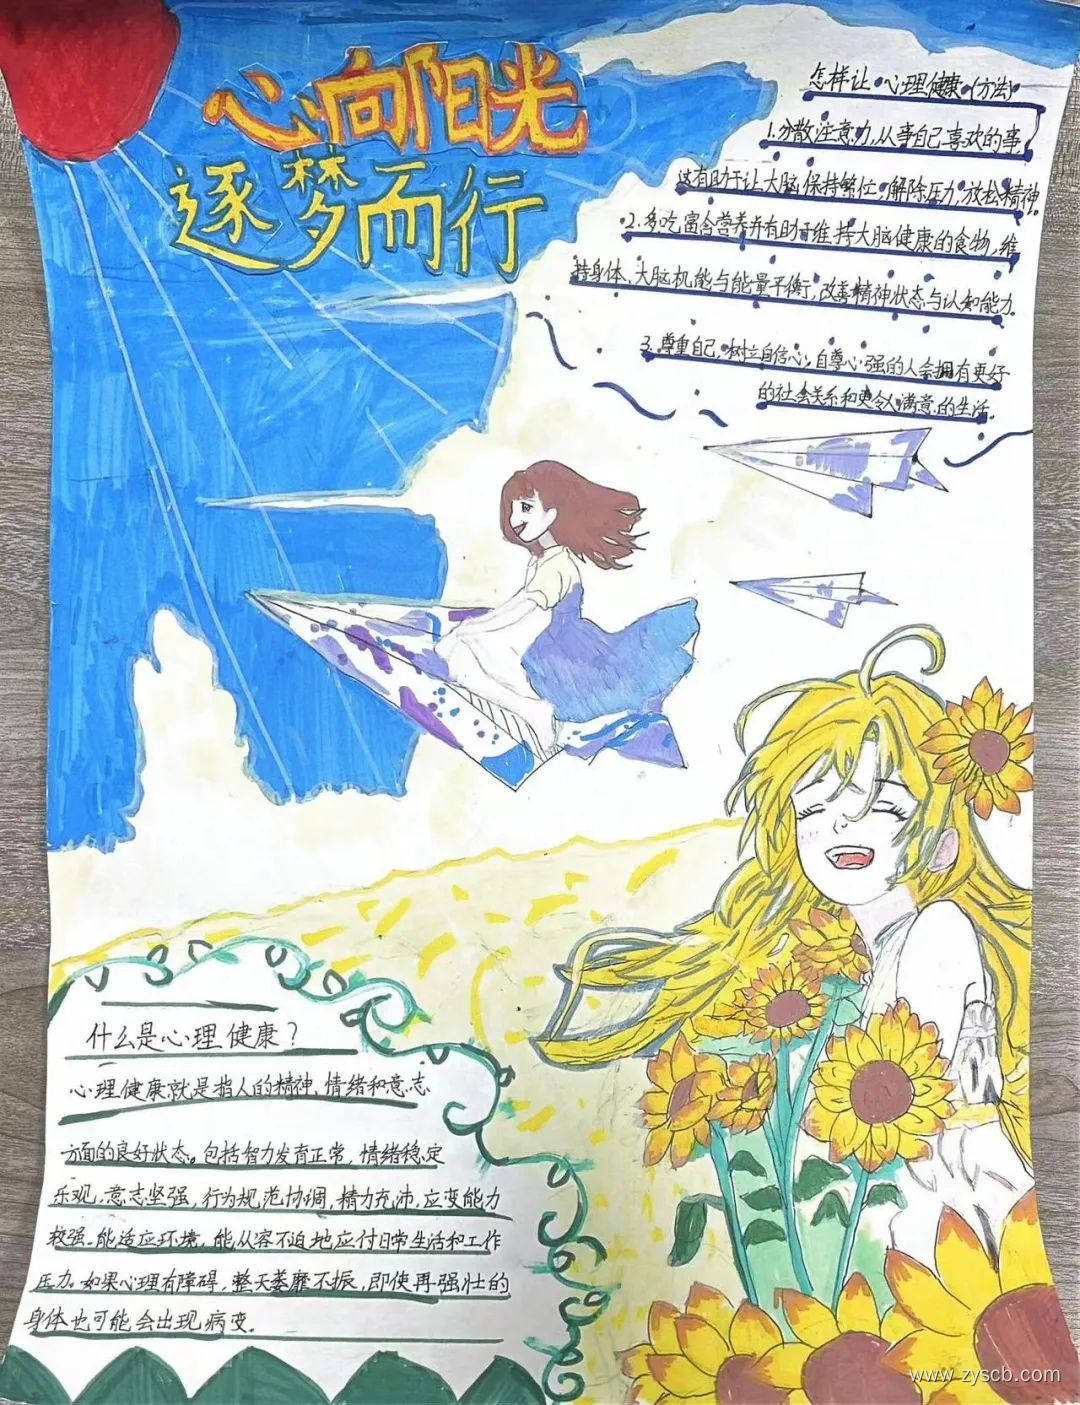 心向阳光
逐梦而行
怎样让心理健康(方法)
1.分散注意力,从事自己喜欢的事,
这有助于让大脑保持繁忙,解除压力,放松精神。
2.多吃富含营养并有助于维持大脑健康的食物,维
持身体、大脑机能与能量平衡,改善精神状态与认知能力。
3.尊重自己,树拉自信心;自尊心强的人会拥有更好
的社会关系和更令人满意的生活。
什么是心理健康?
心理健康就是指人的精神、情绪和意志
方面的良好状态。包括智力发育正常,情绪稳定
乐观,意志坚强,行为规范协调,精力充沛,应变能力
较强,能适应环境,能从容不迫地应付日常生活和工作
压力。如果心理有障碍,整天萎靡不振,即使再强壮的
身体也可能会出现病变.
www.zyscb.com